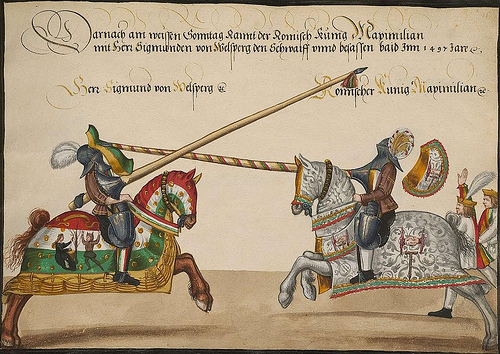 Darnach am weissen Sonntag Rannt der Romisch Kunig Maximilian
mit Herr Sigmunden von Welsperg den Schwaiff vnnd besassen baid Inn 1497 Jarr
Herr Sigmund von Welsperg
Romischer Kunig Maximilian